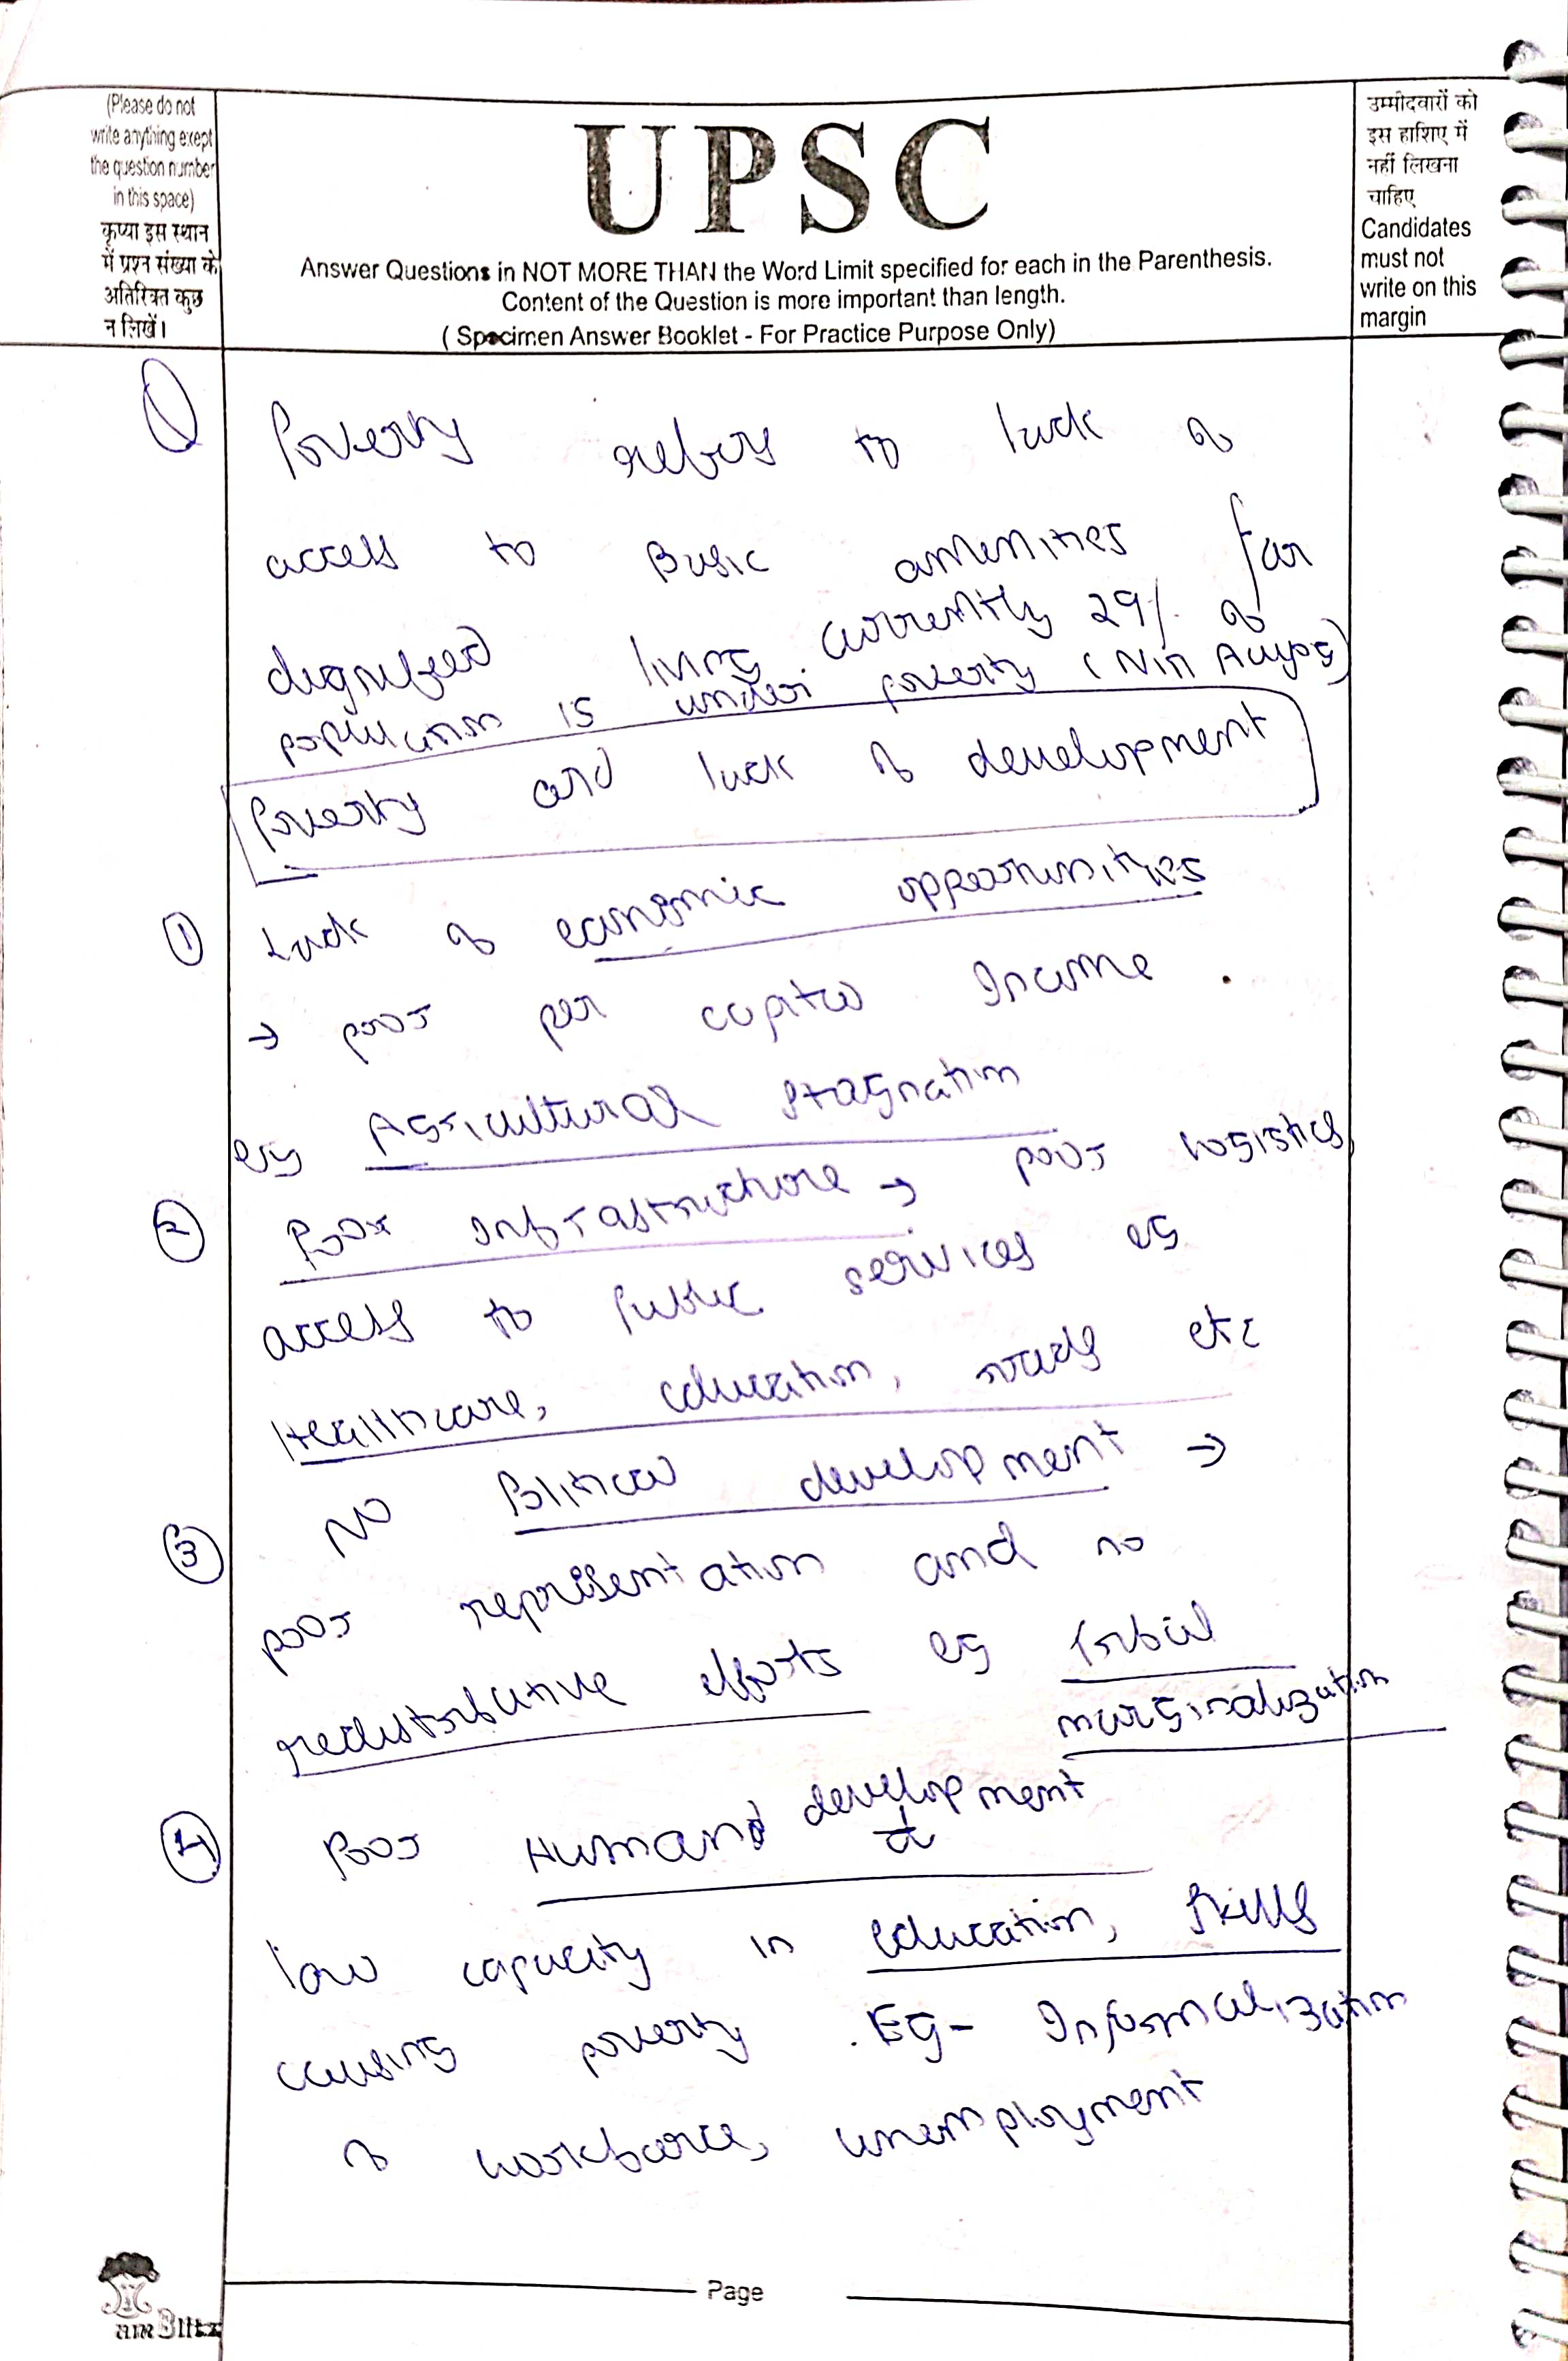 (Please do not
write anything except
the question number
in this space)
कृप्या इस स्थान
में प्रश्न संख्या के
अतिरिक्त कुछ
न लिखें।
UPSC
Answer Questions in NOT MORE THAN the Word Limit specified for each in the Parenthesis.
Content of the Question is more important than length.
( Specimen Answer Booklet - For Practice Purpose Only)
उम्मीदवारों को
इस हाशिए में
नहीं लिखना
चाहिए
Candidates
must not
write on this
margin
Poverty refers to lack of
access to Basic amenities for
dignified living. Currently 29% of
population is under poverty (Niti Aayog)
Poverty and lack of development
① Lack of economic opportunities
→ poor per capita Income
eg Agricultural stagnation
② Poor Infrastructure → poor logistics,
access to public services eg
Healthcare, education, roads etc
③ NO Political development →
poor representation and no
redistributive efforts eg Tribal
marginalization
④ Poor Human development
low capacity in education, skills
causing poverty. Eg- Informalization
of workforce, unemployment
Page
IAS Blitz